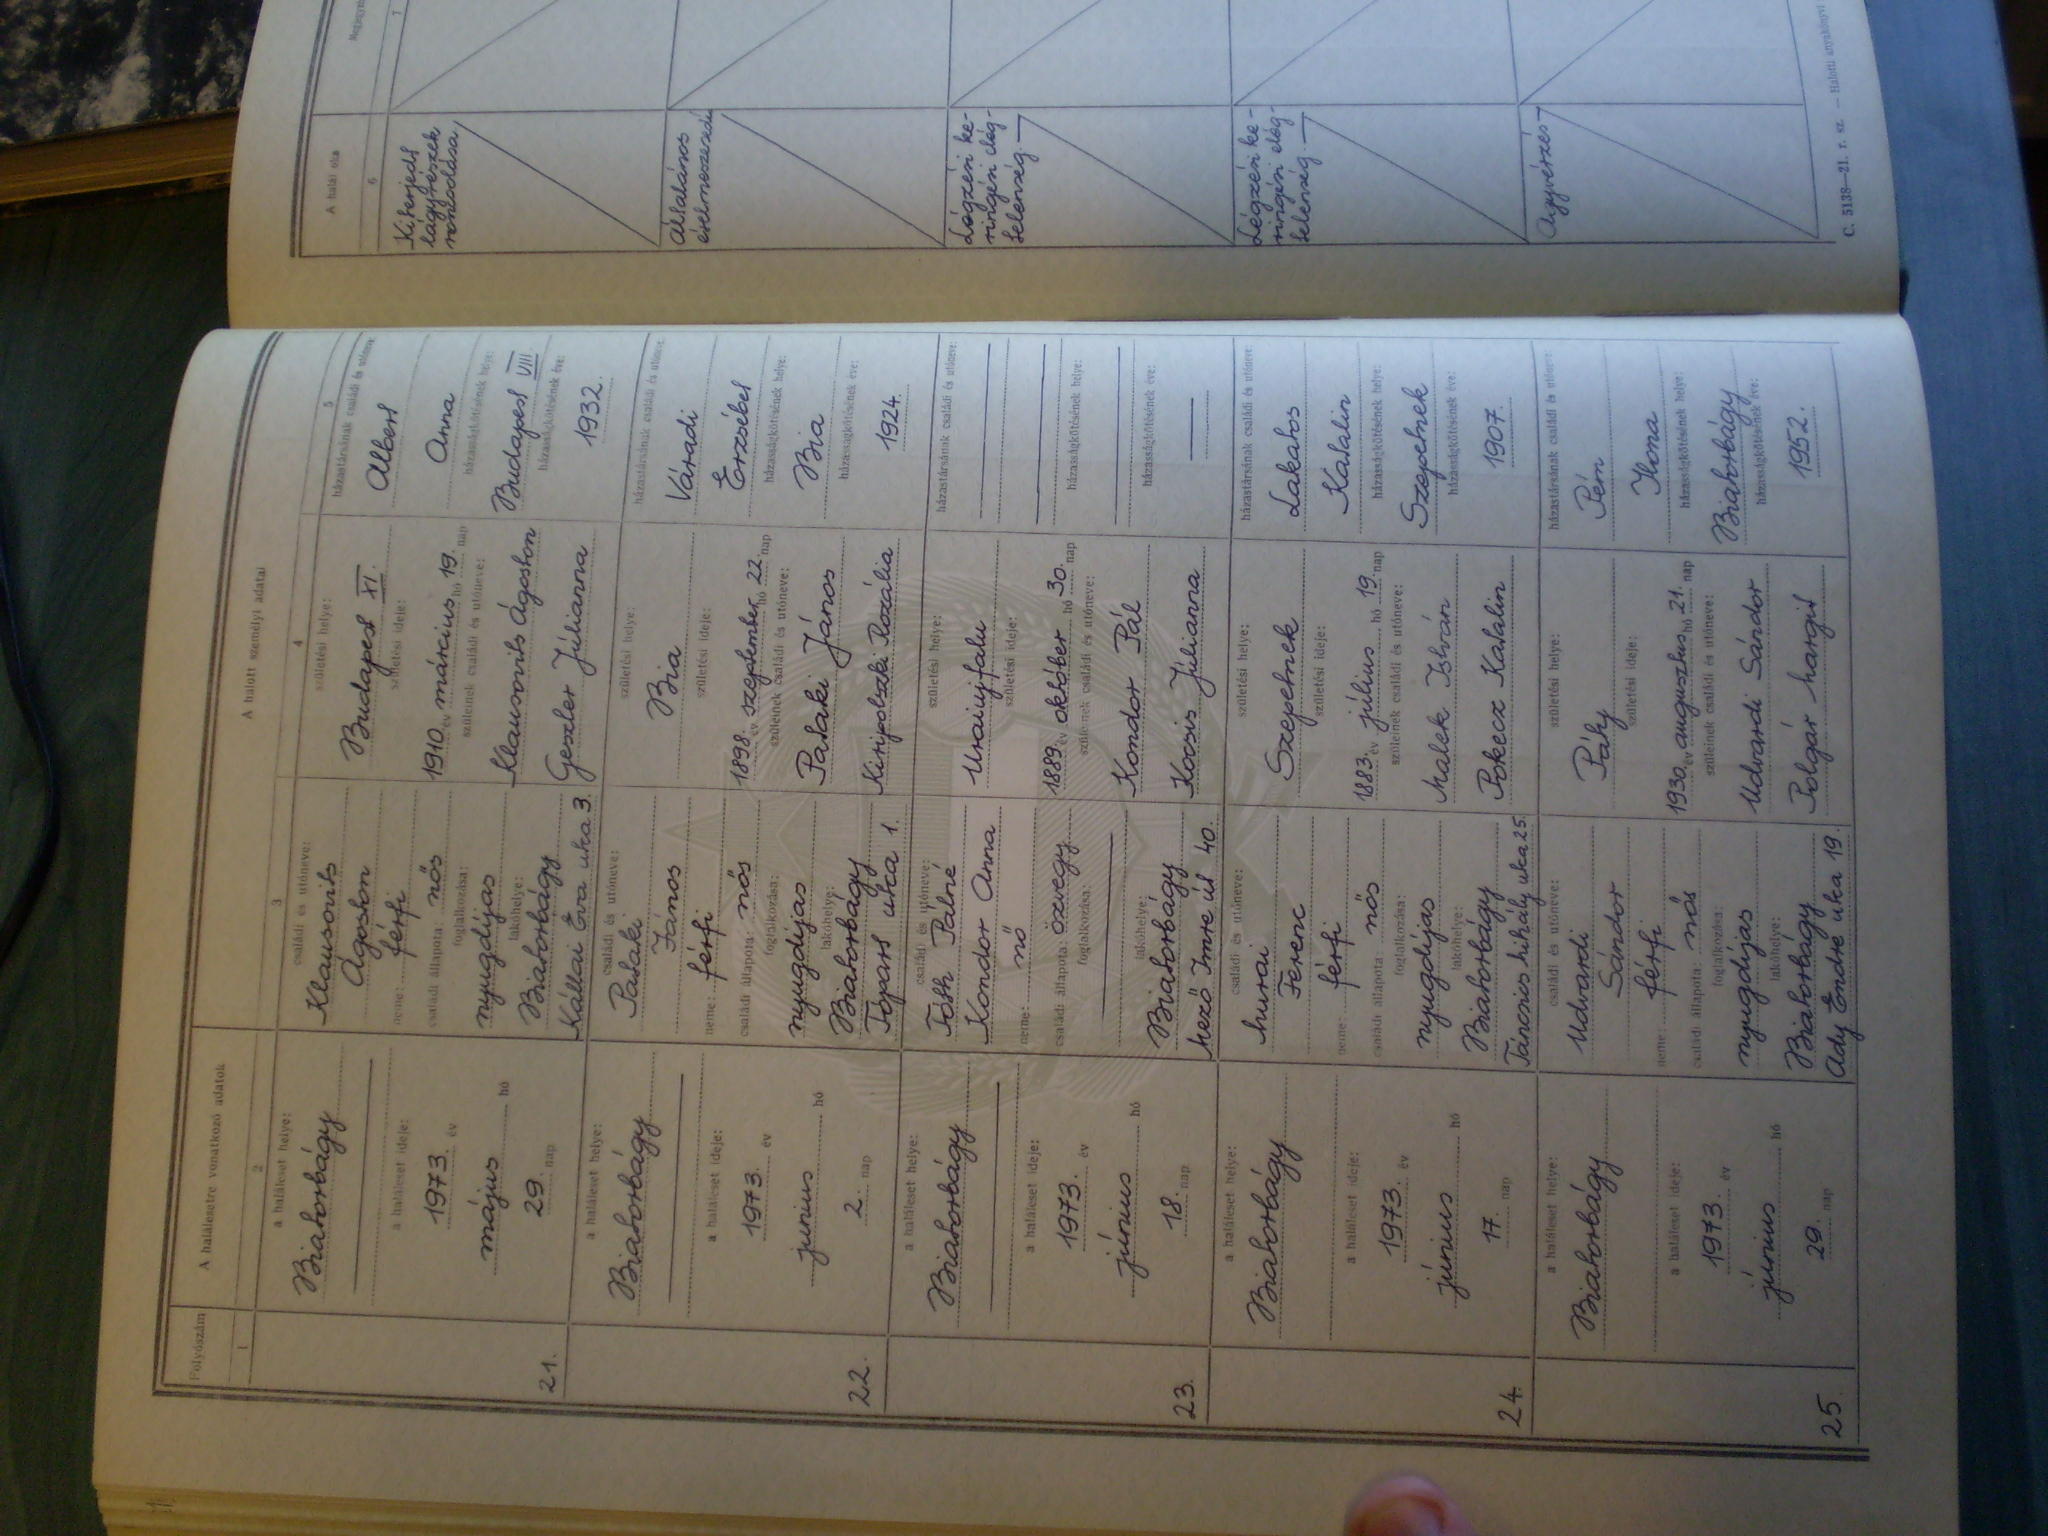 Folyószám
A halálesetre vonatkozó adatok
A halott személyi adatai
A halál oka
1
2
3
4
5
6
7
21.
a haláleset helye:
Biatorbágy
a haláleset ideje:
1973. év
május hó
29. nap
családi és utóneve:
Klausovits
Ágoston
neme: férfi
családi állapota: nős
foglalkozása:
nyugdíjas
lakóhelye:
Biatorbágy
Kállai Éva utca 3.
születési helye:
Budapest XI.
születési ideje:
1910. év március hó 19. nap
szüleinek családi és utóneve:
Klausovits Ágoston
Geszler Júlianna
házastársának családi és utóneve:
Albert
Anna
házasságkötésének helye:
Budapest VIII.
házasságkötésének éve:
1932.
Kiterjedt
lágyrészek
roncsolása
22.
a haláleset helye:
Biatorbágy
a haláleset ideje:
1973. év
június hó
2. nap
családi és utóneve:
Pataki
János
neme: férfi
családi állapota: nős
foglalkozása:
nyugdíjas
lakóhelye:
Biatorbágy
Tópart utca 1.
születési helye:
Bia
születési ideje:
1898. év szeptember hó 22. nap
szüleinek családi és utóneve:
Pataki János
Kiripolszki Rozália
házastársának családi és utóneve:
Váradi
Erzsébet
házasságkötésének helye:
Bia
házasságkötésének éve:
1924.
Általános
érelmeszesedés
23.
a haláleset helye:
Biatorbágy
a haláleset ideje:
1973. év
június hó
18. nap
családi és utóneve:
Tóth Pálné
Kondor Anna
neme: nő
családi állapota: özvegy
foglalkozása:
lakóhelye:
Biatorbágy
Mező Imre út 40.
születési helye:
Uraiujfalu
születési ideje:
1889. év október hó 30. nap
szüleinek családi és utóneve:
Kondor Pál
Kocsis Júlianna
házastársának családi és utóneve:
házasságkötésének helye:
házasságkötésének éve:
Légzési ke-
ringési elég-
telenség.
24.
a haláleset helye:
Biatorbágy
a haláleset ideje:
1973. év
június hó
17. nap
családi és utóneve:
Murai
Ferenc
neme: férfi
családi állapota: nős
foglalkozása:
nyugdíjas
lakóhelye:
Biatorbágy
Táncsics Mihály utca 25.
születési helye:
Szepetnek
születési ideje:
1883. év július hó 19. nap
szüleinek családi és utóneve:
Malek István
Pokecz Katalin
házastársának családi és utóneve:
Lakatos
Katalin
házasságkötésének helye:
Szepetnek
házasságkötésének éve:
1907.
Légzési ke-
ringési elég-
telenség.
25.
a haláleset helye:
Biatorbágy
a haláleset ideje:
1973. év
június hó
29. nap
családi és utóneve:
Udvardi
Sándor
neme: férfi
családi állapota: nős
foglalkozása:
nyugdíjas
lakóhelye:
Biatorbágy
Ady Endre utca 19.
születési helye:
Páty
születési ideje:
1930. év augusztus hó 21. nap
szüleinek családi és utóneve:
Udvardi Sándor
Polgár Margit
házastársának családi és utóneve:
Pém
Ilona
házasságkötésének helye:
Biatorbágy
házasságkötésének éve:
1952.
Agyvérzés
C. 5138—21. r. sz. — Halotti anyakönyvi